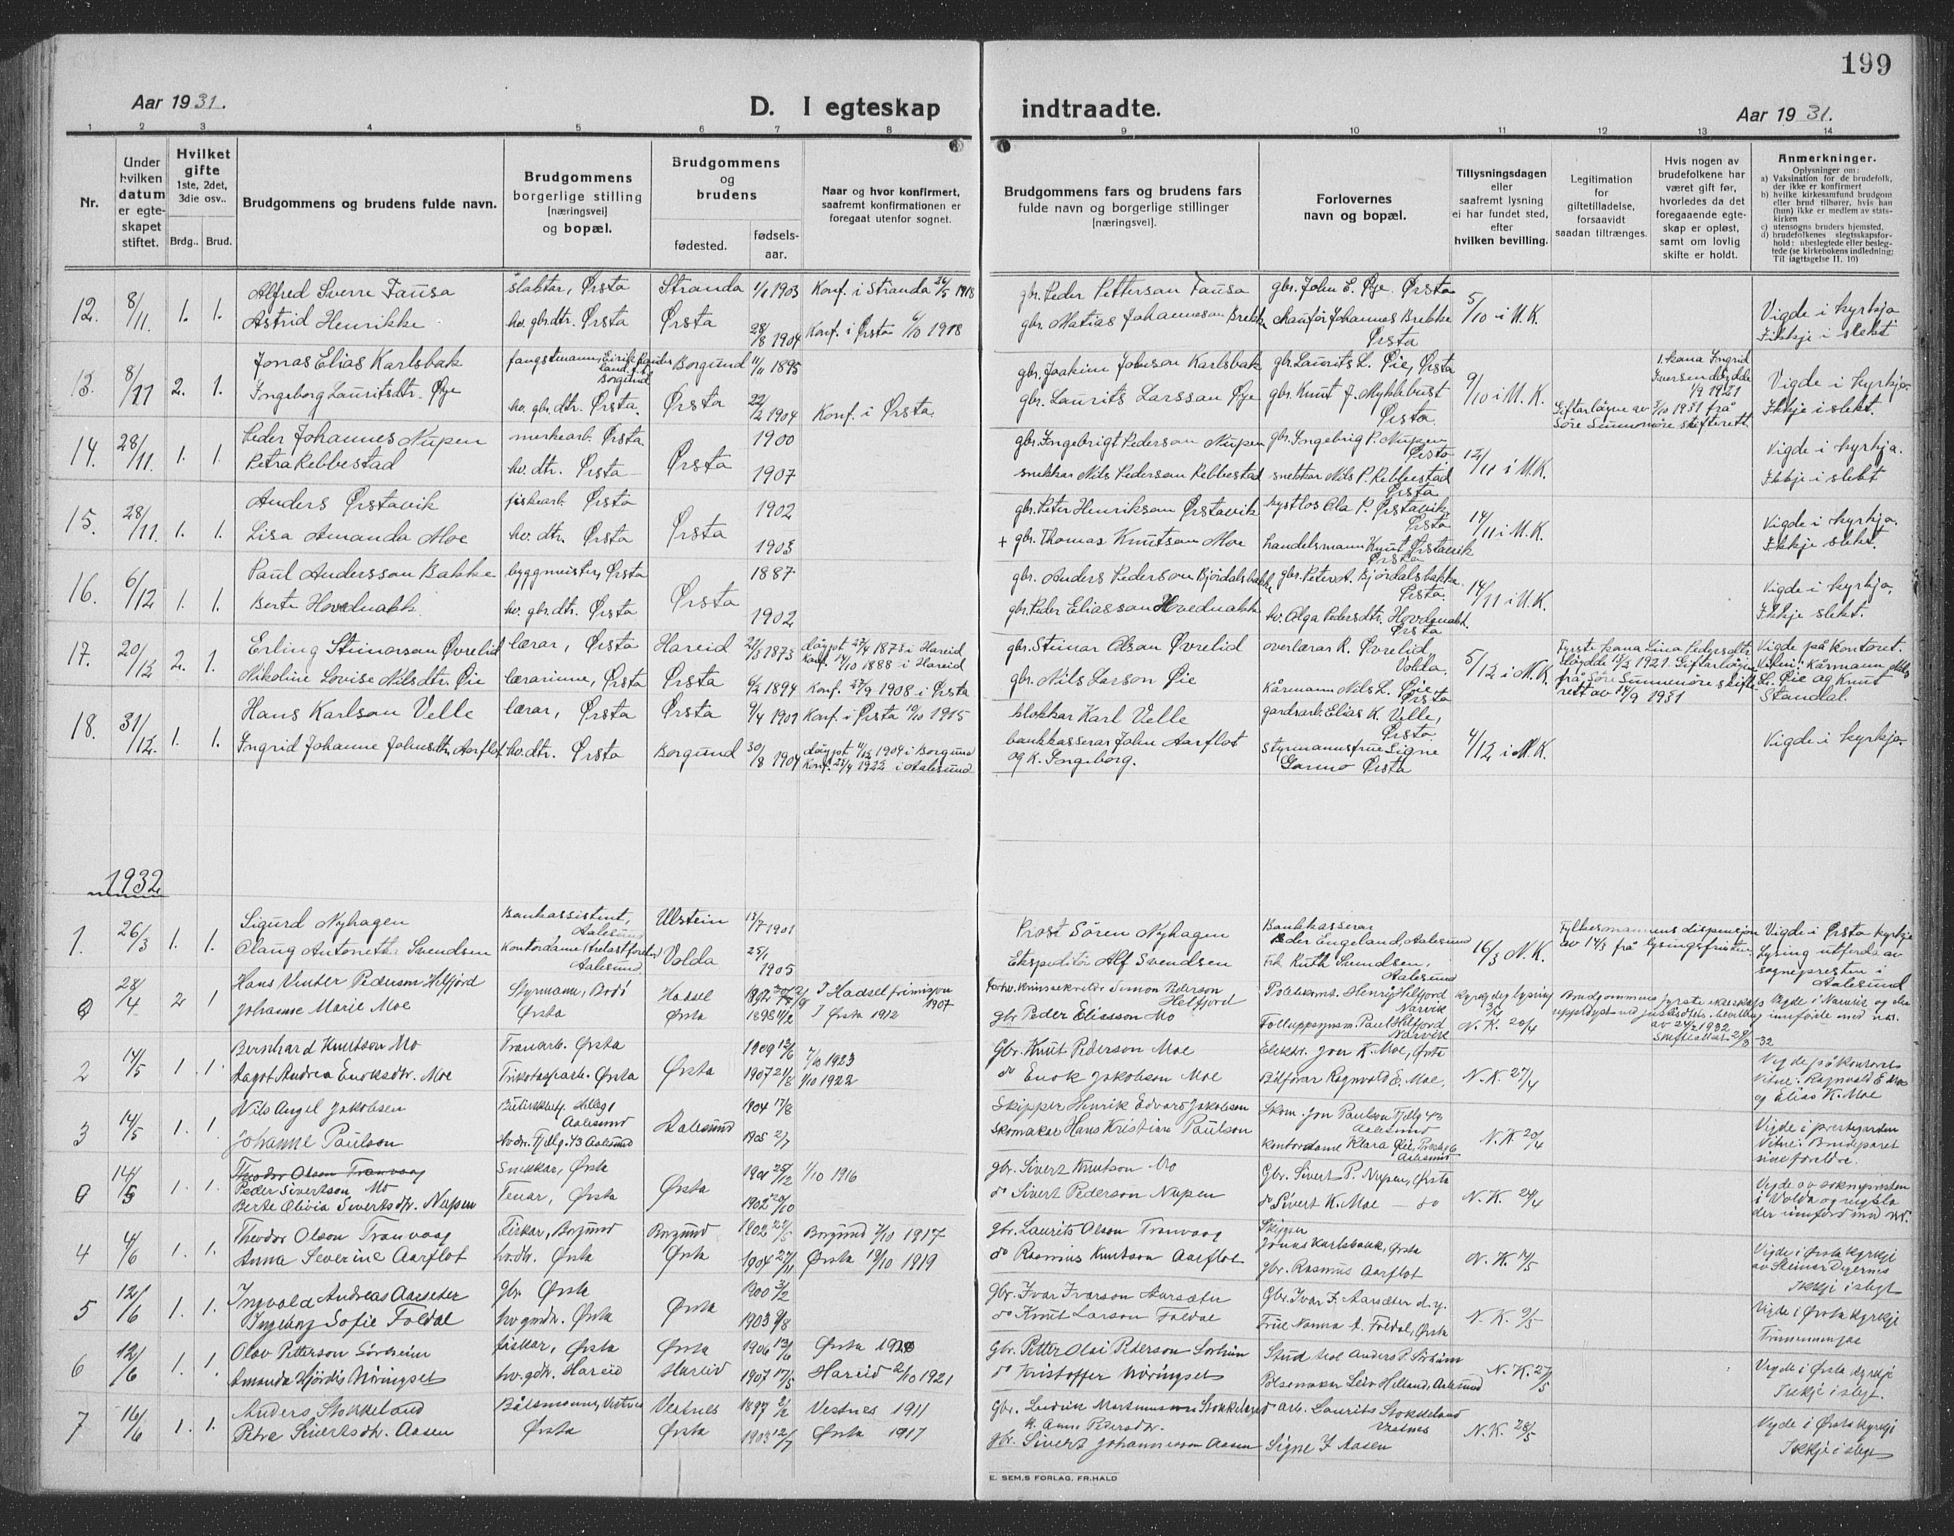 199
Aar 1931.
D. I egteskap indtraadte.
Aar 1931.
1 2 3 4 5 6 7 8 9 10 11 12 13 14
Nr.
Under hvilken datum er egteskapet stiftet.
Hvilket gifte 1ste, 2det, 3die osv..
Brdg.. Brud.
Brudgommens og brudens fulde navn.
Brudgommens borgerlige stilling [næringsvei] og bopæl.
Brudgommens og brudens
fødested.
fødselsaar.
Naar og hvor konfirmert, saafremt konfirmationen er foregaat utenfor sognet.
Brudgommens fars og brudens fars fulde navn og borgerlige stillinger [næringsvei].
Forlovernes navn og bopæl.
Tillysningsdagen eller saafremt lysning ei har fundet sted, efter hvilken bevilling.
Legitimation for giftetilladelse, forsaavidt saadan tiltrænges.
Hvis nogen av brudefolkene har været gift før, hvorledes da det foregaaende egteskap er opløst, samt om lovlig skifte er holdt.
Anmerkninger.
Oplysninger om:
a) Vaksination for de brudefolk, der ikke er konfirmert
b) hvilke kirkesamfund brudgom eller brud tilhører, hvis han (hun) ikke er medlem av statskirken
c) utensogns bruders hjemsted.
d) brudefolkenes slegtsskapsforhold: ubeslegtede eller beslegtede (se kirkebokens indledning; Til iagttagelse II. 10)
12. 8/11. 1. 1. Alfred Sverre Fausa slaktar, Ørsta Stranda 1/1 1903 Konf. i Stranda 26/5 1918 gbr. Peder Pettersan Fausa gbr. John E. Øye Ørsta 5/10 i M.K. Vigde i kyrkja
Astrid Henrikke hv. gbr.dtr. Ørsta Ørsta 28/8 1904 Konf. i Ørsta 1918 gbr. Matias Johanneson Brekke Johannes Brekke Ørsta Ikkje i slekt
13. 8/11 2. 1. Jonas Elias Karlsbak fangstmann, Borgund Borgund 11/11 1895 gbr. Joakim Johnson Karlsbak gbr. Laurits L. Øie, Ørsta 9/10 i M.K. Vigde i kyrkja
Ingeborg Lauritsdtr. Øye hv. gbr.dtr. Ørsta. Ørsta 22/2 1904 Konf. i Ørsta gbr. Laurits Larssan Øye gbr. Knut J. Myklebust Ørsta Ikkje i slekt.
1. kona Ingrid Iversen døydde 1/9 1921
Gifterløyve av 3/10 1931 frå Søre Sunnmøre skifterett
14. 28/11. 1. 1. Peder Johannes Nupen merkearb. Ørsta 1900 gbr. Ingebrigt Pederson Nupen gbr. Ingebrig P. Nupen Ørsta 12/11 i M.K. Vigde i kyrkja.
Petra Rebbestad hv. dtr. Ørsta Ørsta 1907 snekkar Nils Pederson Rebbestad snekkar Nils P. Rebbestad Ørsta Ikkje i slekt
15. 28/11. 1. 1. Anders Ørstavik fiskearb. Ørsta 1902 gbr. Peter Henrikson Ørstavik Ola P. Ørstavik Ørsta 14/11 i M.K. Vigde i kyrkja.
Lisa Amanda Moe hv. dtr. Ørsta Ørsta 1903 + gbr. Thomas Knutson Moe handelsmann Knut Ørstavik Ørsta Ikkje slekt.
16. 6/12 1. 1. Paul Andersson Bakke byggmeister, Ørsta 1887 gbr. Anders Pederson Bjørdalsbakke gbr. Peter A. Bjørdalsbakke Ørsta. 14/11 i M.K. Vigde i kyrkja.
Berte Hovdenakk. hv. gbr.dtr. Ørsta Ørsta 1902 gbr. Peder Eliassan Hovdenakk hv. Olga Pedersdtr. Hovdenakk. Ørsta Ikkje slekt.
17. 20/12 2. 1. Erling Steinarson Øvrelid lærar, Ørsta Hareid 21/3 1873 døypt 27/4 1873 i Hareid Konf. 14/10 1888 i Hareid gbr. Steinar Olsan Øvrelid overlærar R. Øvrelid, Volda. 5/12 i M.K. Fyrste kona Lina Pedersdtr. døydde 1921. Gifterløyve frå Søre Sunnmøre skifterett av 14/9 1931 Vigde på kontoret.
Nikoline Lovise Nilsdtr. Øie lærarinne, Ørsta Ørsta 6/2 1894 Konf. 27/9 1908 i Ørsta gbr. Nils Larson Øie Kårmann Nils L. Øie, Ørsta Vitne: Kårmann Nils L. Øie og Knut Standal.
18. 31/12. 1. 1. Hans Karlson Velle lærar, Ørsta Ørsta 9/4 1901 Konf. i Ørsta 10/10 1915 blokkar Karl Velle gardsarb. Elias K. Velle, Ørsta. 4/12 i M.K. Vigde i kyrkja.
Ingrid Johanne Johnsdtr. Aarflot hv. dtr. Ørsta Borgund 30/8 1904 døypt 11/12 1904 i Borgund Konf. 23/4 1922 i Aalesund bankkasserar John Aarflot og k. Ingeborg. styrmannsfrue Signe Garmo Ørsta
1932
1. 26/3 1. 1. Sigurd Nyhagen Bankassistent, Aalesund Ulstein 13/7 1901 Prost Sören Nyhagen Bankkasserar Peder Engeland, Aalesund 16/3 N.K. Fylkesmannens dispensjon av 14/3 frå lysingsfristen Vigde i Ørsta kyrkje
Olaug Antonette Svendsen Kontordame Aalesund. Volda 25/1 1905 Ekspeditör Alf Svendsen Frk Ruth Sundsen, Aalesund Lysing utferda av sogneprestеn i Aalesund
0 28/4 2 1 Hans Vinter Pederson Helfjord Styrmann, Bodö Hadsel 1892 I Hadsel 1907 Simon Pederson Helfjord Politikonst. Henry Helfjord Narvik N.K. 20/4 Vigde i Narvik
Johanne Marie Moe Ørsta Ørsta 1898 11/2 I Ørsta 1912 gbr Peder Eliasson Mo Paul Helfjord Narvik
2 14/5 1. 1 Bernhard Knutson Mo Tranarb. Ørsta 1909 12/6 7/10 1923 Gbr. Knut Pederson Moe Elektr. Jon K. Moe, Ørsta N.K. 27/4 Vigde på kontoret
Aagot Andrea Enoksdtr. Moe Trikotasjearb. Ørsta Ørsta 1907 21/8 1/10 1922 do Enok Jakobson Moe Bilförar Ragnvald E. Moe, Vitne: Ragnvald E Moe og Elias K. Moe
3 14/5 1. 1. Nils Angel Jakobsen Aalesund 1904 17/8 Skipper Henrik Edvard Jakobsen Skom. Jon Paulson Fjellg 43 Aalesund N.K. 20/4 Vigde i prestegarden
Johanne Paulson Hv.dtr. Fjellg. 43 Aalesund Aalesund 1905 2/7 Skomakar Hans Kristian Paulson Kontordame Klara Øie, Aalesund Vitne: Brudeparet sine foreldre.
0 14/5 1. 1. Theodor Olson Tranvaag Peder Sivertson Mo Snikkar, Ørsta 1901 1/10 1916 gbr. Sivert Knutson Mo Gbr. Sivert P. Nupen, Ørsta N.K. 24/4 Vigde av soknepresten i Volda
Berte Olivia Sivertsdtr. Nupen Tenar, Ørsta Ørsta 1902 20/10 do Sivert Pederson Nupen do Sivert K. Moe - do
4 4/6 1. 1. Theodor Olson Tranvaag Fiskar, Borgund Borgund 1902 Borgund 7/10 1917 gbr. Laurits Olson Tranvaag Skipper Jonas Karlsbakk, Ørsta N.K. 14/5 Vigde i Ørsta kyrkje
Anna Severine Aarflot hv.dtr. Ørsta Ørsta 1904 27/11 Ørsta 19/10 1919 do Rasmus Knutson Aarflot Gbr. Rasmus Aarflot Ikkje i slegt
5 12/6 1. 1. Ingvald Andreas Aarseter Gbr. Ørsta 1900 3/2 Gbr Ivar Ivarson Aarsæter Gbr. Ivar I. Aarsæter d.y. N.K. 9/5 Vigde i Ørsta kyrkje
Ingeborg Sofie Foldal Ørsta Ørsta 1903 9/8 do Knut Larson Foldal Frue Nanna A. Foldal, Ørsta
6 12/6 1. 1. Olav Petterson Sördheim fiskar, Ørsta Ørsta 1906 13/6 Ørsta 1920 Gbr. Petter Olai Pederson Sorheim Anders P. Sörheim N.K. 27/5 Vigde i Ørsta kyrkje
Amanda Hjördis Nöringset Hareid Hareid 1907 17/5 Hareid 2/10 1921 do Kristoffer Nöringset Leiv Helland, Aalesund Ikkje i slegt.
7 16/6 1. 1. Anders Stokkeland Båtsmann, Vestnes Vestnes 1897 2/2 Vestnes 1911 Gbr. Ludvik Martinusson Stokkeland arb. Laurits Stokkeland Vestnes N.K. 28/5 Vigde i Ørsta kyrkje
k. Anne Pedersdtr.
Petra Sivertsdtr. Aasen Ørsta Ørsta 1903 12/7 Ørsta 1917 gbr. Sivert Johannesson Aasen Signe J. Aasen Ikkje i slegt
E. SEM,S FORLAG, FR.HALD